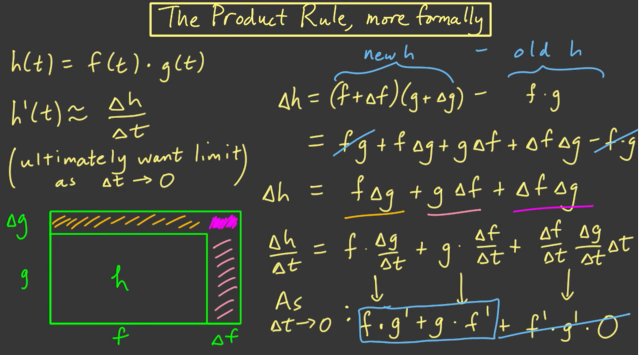 The Product Rule, more formally
h(t) = f(t) · g(t)
h'(t) ≈ Δh/Δt
(ultimately want limit
as Δt → 0)
Δg
g
h
f
Δf
new h - old h
Δh = (f+Δf)(g+Δg) - f·g
= fg + fΔg + gΔf + ΔfΔg - f·g
Δh = fΔg + gΔf + ΔfΔg
Δh/Δt = f · Δg/Δt + g · Δf/Δt + Δf/Δt Δg/Δt Δt
As
Δt → 0 : f·g' + g·f' + f'·g'·0